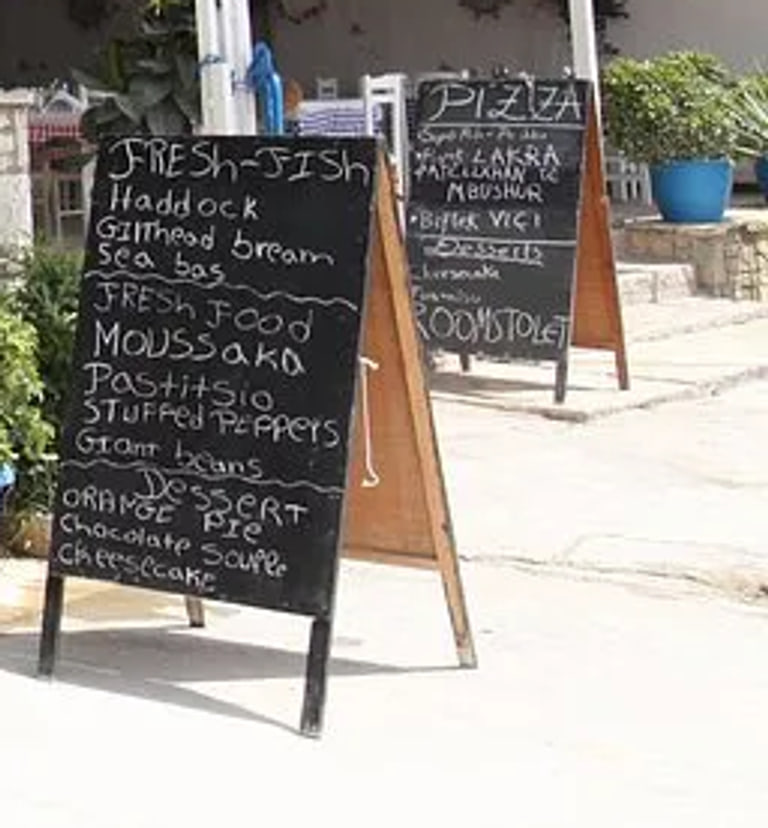 FRESH-FISH
Haddock
Gilthead bream
Sea bas
FRESH FOOD
MOUSSaKa
Pastitsio
STUFFed PEPPerS
Giant beans
DeSSERT
ORANGE PIe
Chocolate SouFle
Cheesecake
PIZZA
LAKRA
MBUSHUR
•Biftek VIÇI
Desserts
Cheesecake
ROOMSTOLET